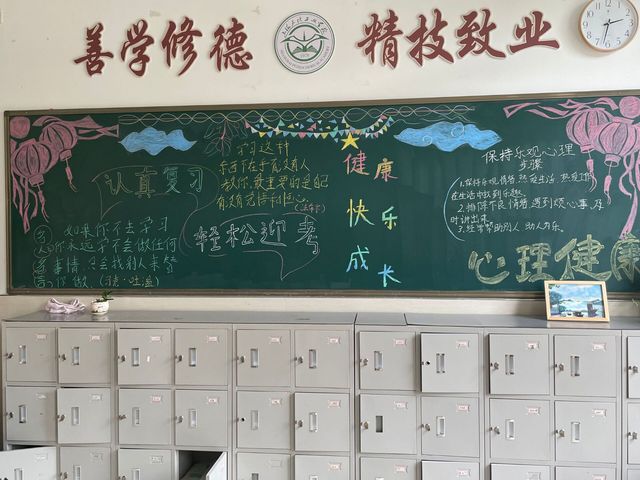 善学修德
精技致业
认真复习
学习这件
东西不在乎有没有人
教你,最重要的是自己
有没有
轻松迎考
如果你不去学习
你永远学不会做任何
事情,只会找别人来替
你做。
健康
快乐
成长
保持乐观心理
步骤
1.保持乐观情绪,热爱生活,热爱工作
在生活中找到乐趣
2.排除不良情绪,遇到烦心事,及
时讲出来
3.经常帮助别人 助人为乐。
心理健康